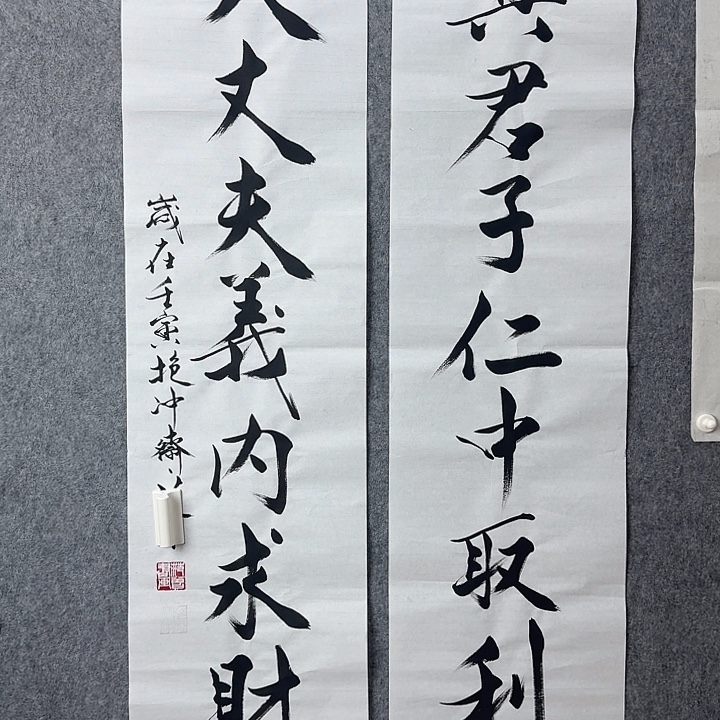 真君子仁中取利
大丈夫義内求財
歲在壬寅抱冲齋